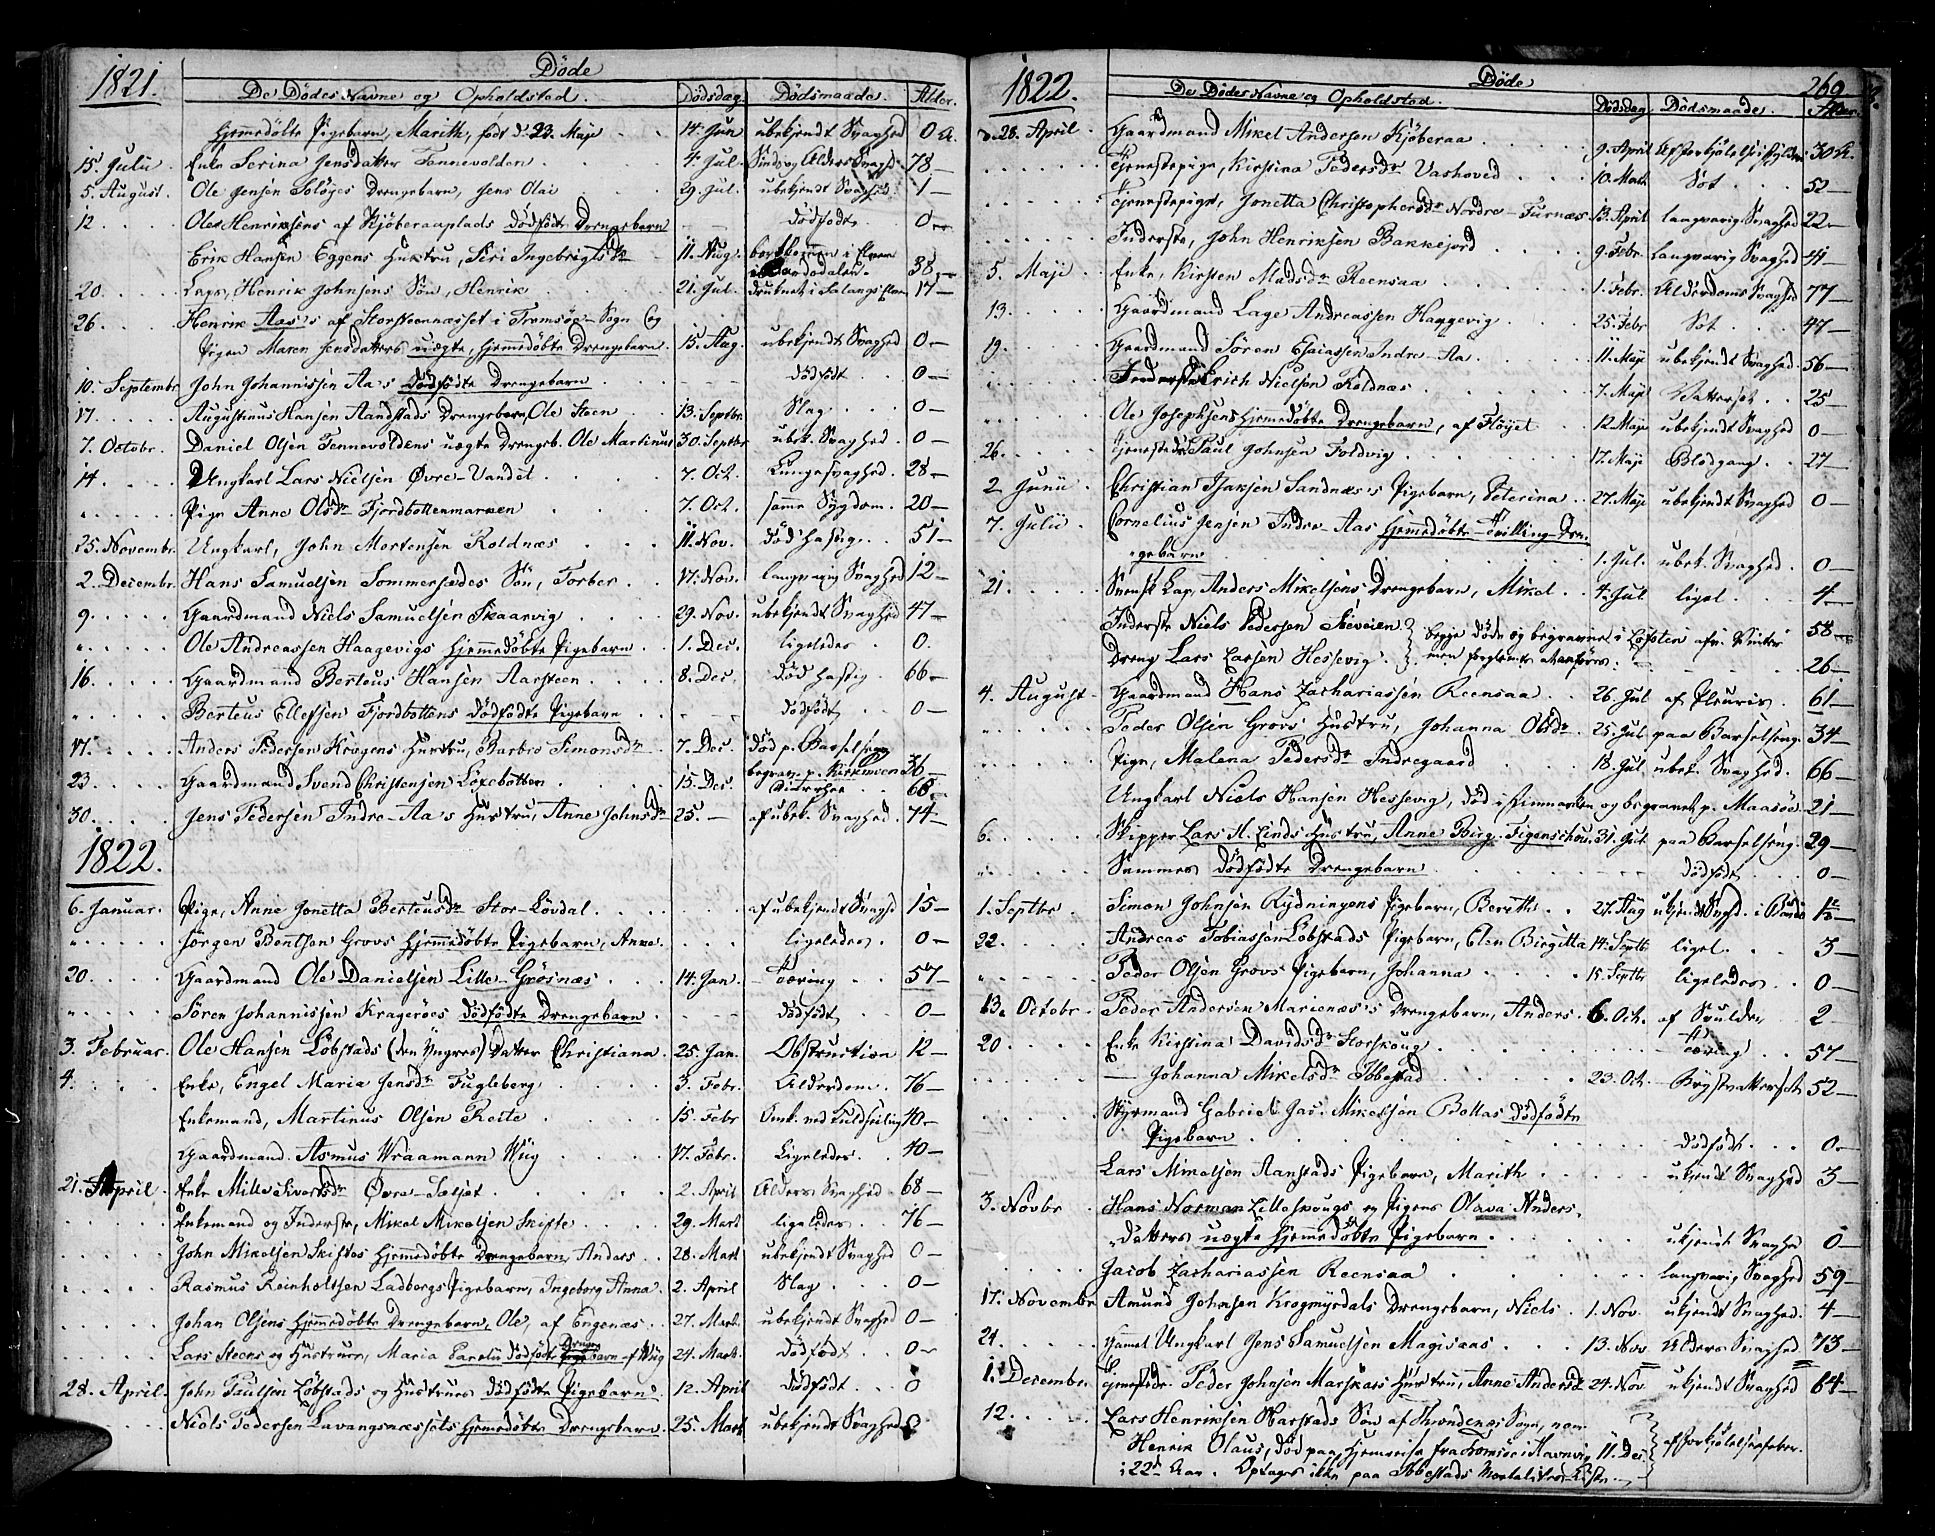 1821.
Døde
De Dødes Navne og Opholdsted. Dødsdag. Dødsmaade. Alder.
hjemmedøbte Pigebarn, Marith, født d. 23. Maji 14. Jun ubekjendt Svaghed 0 A.
15 Julii Enke Serina Jensdatter Tennevolden 4. Jul. Alders Svaghed 78
5. August. Ole Jensen Soløyes Drengebarn, Jens Olai 29. Jul. ubekjendt Svaghed 1
12 Ole Henriksens af Kjøberaaplads dødfødte Drengebarn dødfødt 0
Erik Hansen Eggens Hustru, Siri Ingebrigtsdr 11. Aug. bortkommen i Elven 38
20 Lap, Henrik Johnsens Søn, Henrik 21. Jul. druknet i Salangs Elven 17
26 Henrik Aas's af Storsteennæsset i Tromsøe Sogn og
Pigen Maren Jensdatters uægte, hjemmedøbte Drengebarn 15. Aug. ubekjendt Svaghed 0
10. Septembr. John Johannissen Aa's dødfødte Drengebarn dødfødt 0
17. Augustinus Hansen Aandstads Drengebarn, Ole Steen 13. Septbr. Slag 0
7. Octobr. Daniel Olsen Tennevoldens uægte Drengeb. Ole Martinus 30. Septbr ubek. Svaghed 0
14 Ungkarl Lars Nielsen Øvre-Vandet 7. Oct. Lungesvaghed 28
Pige Anne Olsdr Fjordbottenmarken 7. Oct. samme Sygdom 20
25. Novembr. Ungkarl, John Mortensen Roldnæs 11. Nov. død hastig 51
2. Decembr. Hans Samuelsen Sommersædes Søn, Torber 17. Nov. langvarig Svaghed 12
9. Gaardmand Niels Samuelsen Skaarvig 29. Nov. ubekjendt Svaghed 47
Ole Andreassen Haagevigs hjemmedøbte Pigebarn 1. Dec. ligeledes 0
16. Gaardmand Berteus Hansen Aarsteen 8. Dec. død hastig 66
Berteus Ellefsen Fjordbottens dødfødte Pigebarn dødfødt 0
17. Anders Pedersen Krogens Hustru, Barbro Simonsdr 7. Dec. død p. Barselseng begrav. p. Kirkmoen 36
23 Gaardmand Svend Christensen Løxebotten 15. Dec. Diarrhee 68
30. Jens Pedersen Indre-Aa's Hustru, Anne Johnsdr 25. af ubek. Svaghed 74
1822.
6. Januar. Pige, Anne Jonetta Berteusdr Stor-Løvdal af ubekjendt Svaghed 15
Jørgen Bentsen Grovs hjemmedøbte Pigebarn, Anne ligeledes 0
20 Gaardmand Ole Danielsen Lille-Grøsnæs 14. Jan. Tæring 57
Søren Johannissen Kragerøes dødfødte Drengebarn dødfødt 0
3. Februar. Ole Hansen Løbstads (den Yngres) Datter Christiana 25. Jan. Obstruction 12
4. Enke, Engel Maria Jensdr Fugleberg 3. Febr. Alderdom 76
Enkemand, Martinus Olsen Reite 15. Febr Omk. ved Kuldseiling 40
Gaardmand. Asmus Wraamann Wiig 17. Febr. Ligeledes 40
21. April Enke Mille Sivertsdr Øvre-Sæljet 2. April Alders Svaghed 68
Enkemand og Inderst, Mikel Mikelsen Skifte 29. Mart ligeledes 76
John Mikelsen Skiftes hjemmedøbte Drengebarn, Anders 28. Mart ubekjendt Svaghed 0
Rasmus Reinholtsen Ladbergs Pigebarn, Ingeborg Anna 2. April Slag 0
Johan Olsens hjemmedøbte Drengebarn, Ole, af Engenæs 27. Mart. ubekjendt Svaghed 0
Lars Steens og Hustrues, Maria dødfødte Drengebarn af Wiig 24. Mart. dødfødt 0
28. April. John Paulsen Løbstads og Hustrues dødfødte Pigebarn 12. April dødfødt 0
Niels Pedersen Lavangsnæssets hjemmedøbte Drengebarn 25. Mart ubekjendt Svaghed 0
1822.
Døde
269
De Dødes Navne og Opholdsted. Dødsdag. Dødsmaade. Alder
28. April Gaardmand Mikel Andersen Kjøberaa 9. April 30 A.
Tjenestepige, Kirstina Pedersdr Vashoved 10. Mart. Sot 52
Tjenestepige, Jonetta Christophersdr Nordre-Furnæs 13. April langvarig Svaghed 22
Inderste, John Henriksen Bakkejord 9. Febr. Langvarig Svaghed 41
5. Maji Enke, Kirsten Madsdr Reensaa 1. Febr. Alderdoms Svaghed 77
13. Gaardmand Lage Andreassen Haagevig 25. Febr Sot 47
19. Gaardmand Søren Esaiassen Indre-Aa 11. Maji ubekjendt Svaghed 56
Inderste Erich Nielsen Roldnæs 7. Maji Vattersot 25
Ole Josephsens hjemmedøbte Drengebarn, af Fløyet 12. Maji ubekjendt Svaghed 0
26. Tjenestedr. Paul Johnsen Foldvig 17. Maji Blodgang 27
2 Junii Christian Isaksen Sandnæs's Pigebarn, Peterina 27. Maji ubekjendt Svaghed 0
7. Julii Cornelius Jensen Indre-Aas hjemmedøbte Tvilling-Dren
gebarn 1. Jul. ubek. Svaghed 0
21. Svensk Lap, Anders Mikelsens Drengebarn, Mikel 4. Jul ligel. 4
Inderste Niels Pedersen Steveien begge døde og begravne i Lofoten afv. Vinter 58
Dreng Lars Larsen Hessevig 26
4. August Gaardmand Hans Zachariassen Reensaa 26. Jul af Pleurix. 61
Peder Olsen Grovs Hustru, Johanna Olsdr 25. Jul paa Barselseng 34
Pige, Malena Pedersdr Indregaard 18. Jul ubek. Svaghed 66
Ungkarl Niels Hansen Hessevig, død i Finmarken og begravet p. Maasøe 21
6. Skipper Lars H. Linds Hustru, Anne Birg. Figenschou 31. Jul. paa Barselseng 29
Sammes dødfødte Drengebarn dødfødt 0
1. Septbr. Simon Johnsen Rydningens Pigebarn, Berith 27. Aug ukjendt Svaghed
22. Andreas Tobiassen Løbstads Pigebarn, Elen Birgitta 14. Septbr ligel. 3
Peder Olsen Grovs Pigebarn, Johanna 15. Septbr ligeledes 0
13. Octobr. Peder Andersen Marienæs's Drengebarn, Anders 6. Oct. af Svulder 2
20 Enke Kirstina Davidsdr Storskoug Tæring 57
Johanna Mikelsdr Ibbestad 23. Oct. Brystvattersot 52
Styrmand Gabriel Jac. Mikelsen Bollas dødfødte
Pigebarn dødfødt 0
Lars Mikelsen Aanstads Pigebarn, Marith ukjendt Svaghed 3
3. Novbr Hans Norman Lilleskougs og Pigens Olava Anders-
datters uægte hjemmedøbte Pigebarn ukjendt Svaghed 0
Jacob Zachariassen Reensaa langvarig Svaghed 59
17. Novembr Amund Johnsen Krogmyrdals Drengebarn, Niels 1. Nov. ukjendt Svaghed 4
24. Gammel Ungkarl Jens Samuelsen Magisaas 13. Nov Alders Svaghed 73
1. Decembr. Tjenestedr. Peder Johnsen Marskars Hustru, Anne Andersdr 24. Nov ukjendt Svaghed 64
12. Lars Henriksen Harstads Søn af Throndenæs Sogn, navn
Henrik Olaus, død paa Hjemreise fra Tromsøe i Havnvig 11. Dec. af Forkjølelsesfeber
i 22d Aar. Optages ikke paa Ibbestads Mortalitets Liste